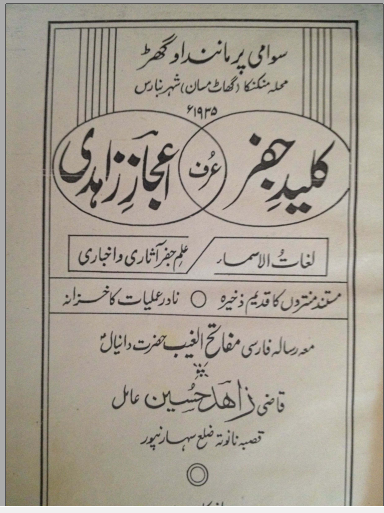 سوامی پرمانند اوگھڑ
محلہ منکنکا (گھاٹ مسان) شہر بنارس
۱۹۳۵ء
کلیدِ جفر عُرف اعجازِ زاہدی
لغاتُ الاسماء / علمِ جفر آثاری و اخباری
مستند منتروں کا قدیم ذخیرہ ○ نادر عملیات کا خزانہ
معہ رسالہ فارسی مفاتح الغیب حضرت دانیالؑ
قاضی زاھد حسین عامل
قصبہ نانوتہ ضلع سہارنپور